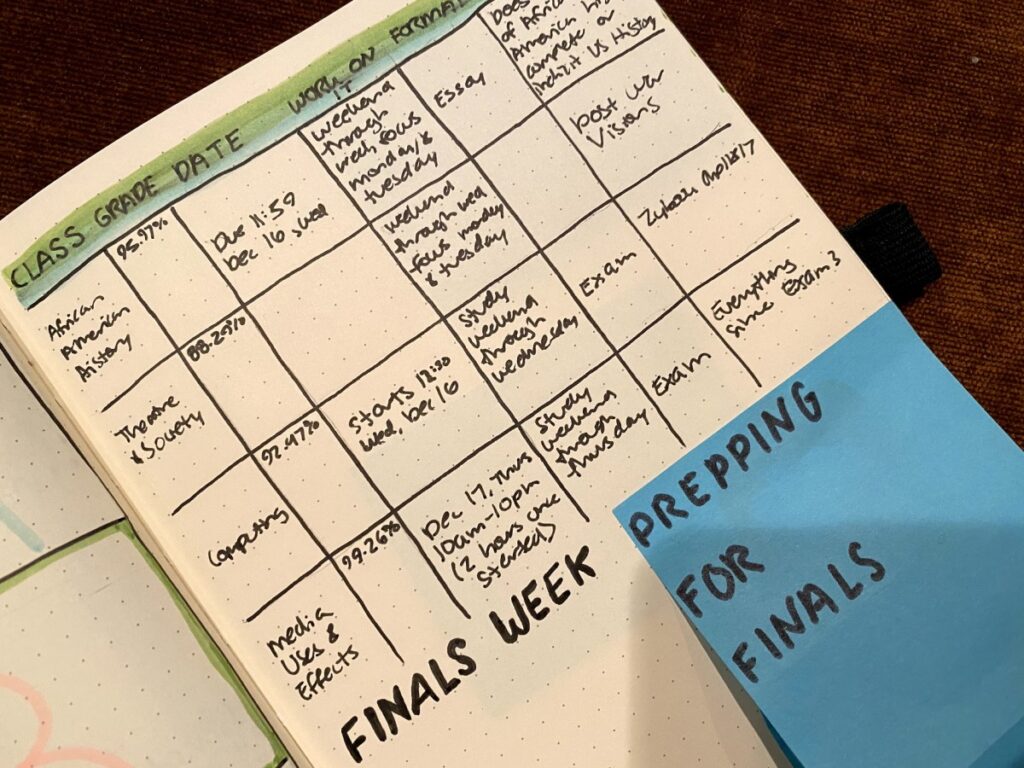 CLASS GRADE DATE WORK ON IT FORMAT
African
American
History
95.97%
Due 11:59
Dec 16
weekend
through
wed, focus
monday &
tuesday
Essay
Does
of Africa
America
complete or
US History
Theatre
& Society
88.29%
weekend
through wed
focus monday
& tuesday
post war
visions
Computing
92.97%
Starts 12:30
Wed, Dec 16
Study
weekend
through
wednesday
Exam
Zybooks
Media
Uses &
Effects
99.26%
Dec 17, Thurs
10am-10pm
(2 hours once
started)
Study
weekend
through
thursday
Exam
Everything
since Exam 3
FINALS WEEK
PREPPING
FOR
FINALS